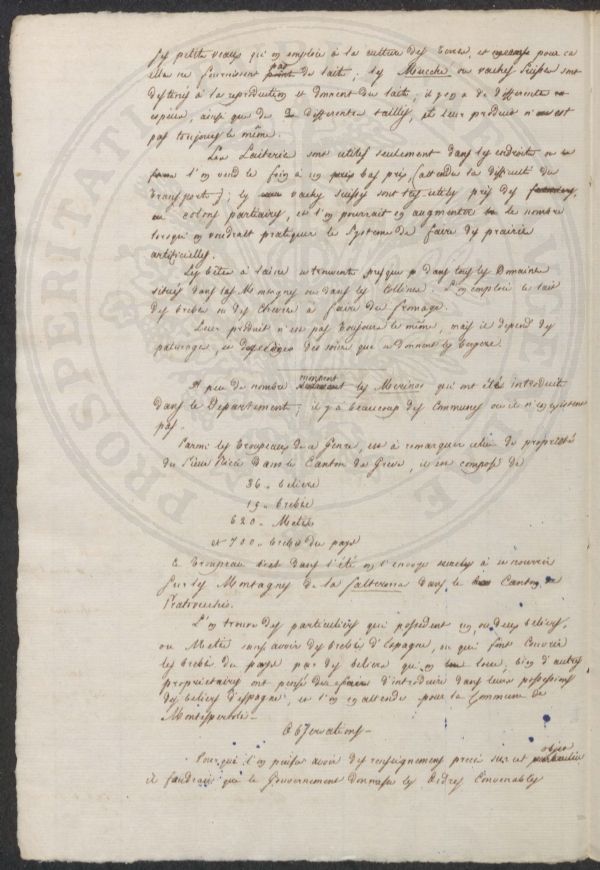 les petits veaux qu'on emploie à la culture des terres, et pour ca
elles ne fournissent pas de lait; les Mucche ou vaches suisses sont
destinés à la reproduction et donnent du lait; il y en a de differente
espece, ainsi que de differentes tailles, et leur produit n'est
pas toujours le même.
Les Laiterie sont utiles seulement dans les endroits ou
l'on vend le foin à un bas prix, (attendu la difficulté du
transport); les vaches suisses sont très utiles près des
colons partiaires, et l'on pourrait en augmenter le nombre
lorsqu'on voudrait pratiquer le systeme de faire des prairies
artificielles.
Les bêtes à laine se trouvent presque dans tous les Domaines
situés dans les Montagnes ou dans les Collines. L'on emploie le lait
des brebis ou des chevres à faire du fromage.
Leur produit n'est pas toujours le même, mais il depend des
paturages, et des soins que se donnent les bergers.
A peu de nombre montent les Merinos qui ont été introduit
dans le Departement; il y a beaucoup des Communes ou il n'en existent
pas.
Parmi les troupeaux de ce Genre, est à remarquer celui de proprieté
du Sieur Ricci dans le Canton de Greve, il est composé de
36 beliers
19 brebis
620 Metis
et 700 brebis du pays
Ce troupeau dans l'été on l'envoye à se nourrir
sur les Montagnes de la falterona dans le Canton de
Pratovecchio.
L'on trouve des particuliers qui possedent un, ou deux beliers,
ou Metis sans avoir des brebis d'Espagne, ou qui font couvrir
les brebis du pays par des beliers qu'on loue, bien d'autres
proprietaires ont pensé d'introduire dans leurs possessions
des beliers d'espagne, et l'on en attend pour la Commune de
Montespertoli.
Observations
Pour que l'on puisse avoir des renseignements precis sur cet objet
il faudrait que le Gouvernement donnasse les ordres Convenables
PROSPERITATI